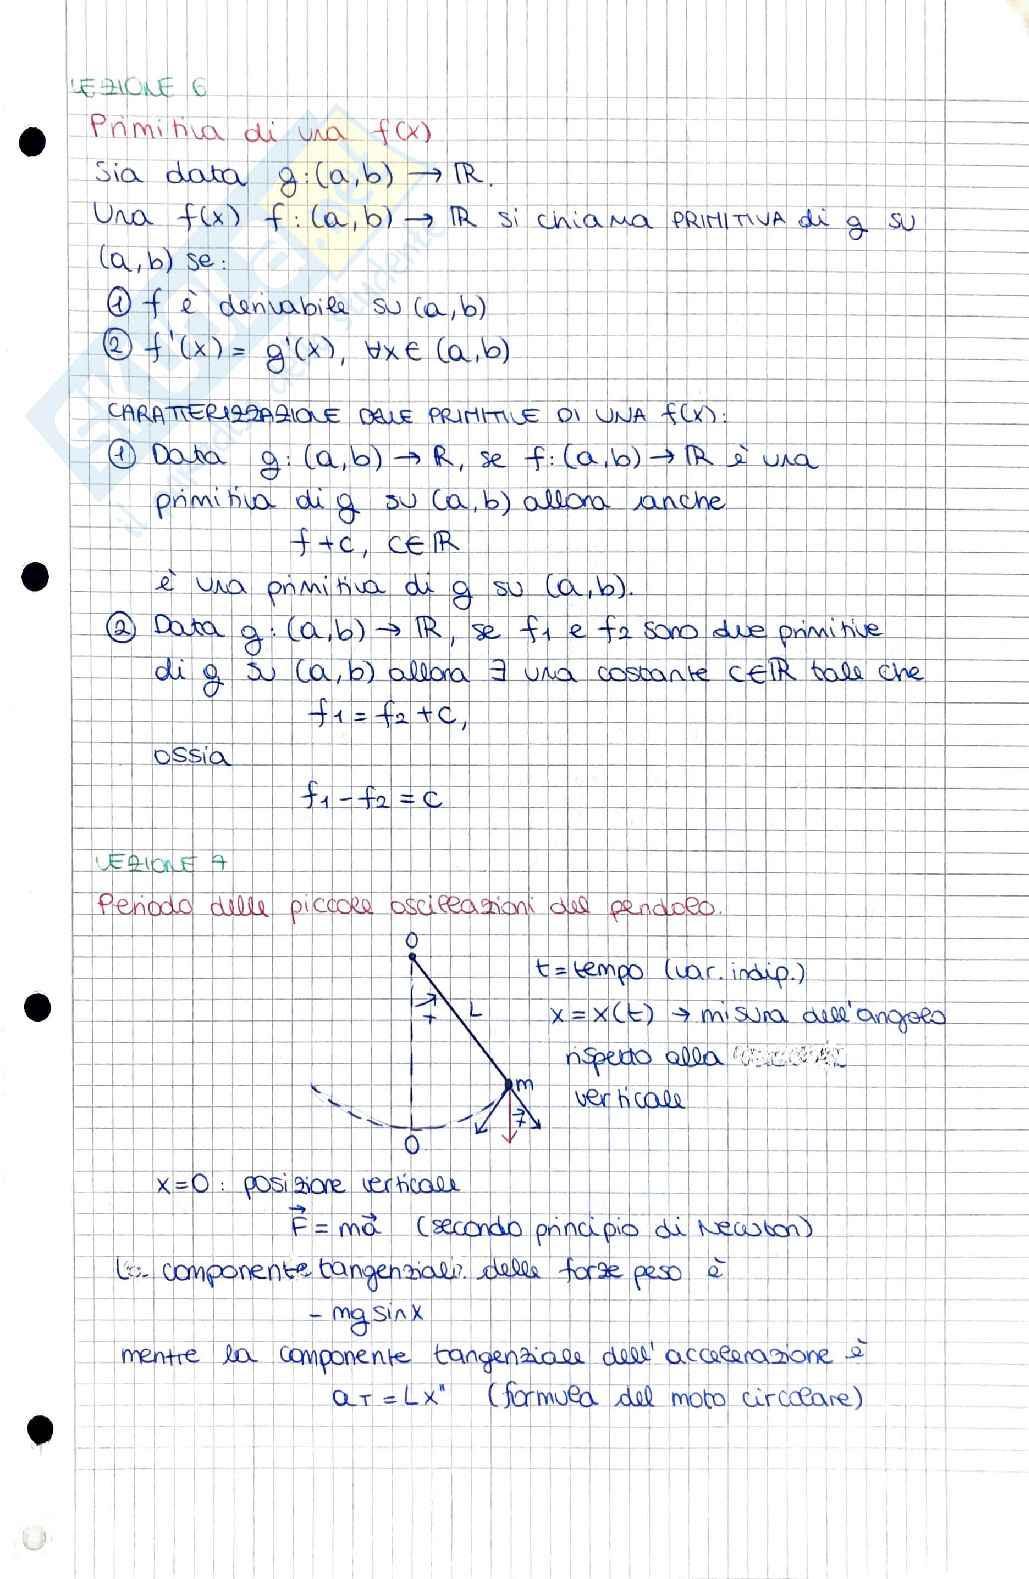 LEZIONE 6
Primitiva di una f(x)
Sia data g:(a,b) → ℝ.
Una f(x) f:(a,b) → ℝ si chiama PRIMITIVA di g su
(a,b) se:
① f è derivabile su (a,b)
② f'(x) = g'(x), ∀x∈ (a,b)
CARATTERIZZAZIONE DELLE PRIMITIVE DI UNA f(x):
① Data g:(a,b) → ℝ, se f:(a,b) → ℝ è una
primitiva di g su (a,b) allora anche
f+c, c∈ℝ
è una primitiva di g su (a,b).
② Data g:(a,b) → ℝ, se f1 e f2 sono due primitive
di g su (a,b) allora ∃ una costante c∈ℝ tale che
f1 = f2 + c,
ossia
f1 - f2 = c
LEZIONE 7
Periodo delle piccole oscillazioni del pendolo.
O
t = tempo (var. indip.)
L
x = x(t) → misura dell'angolo
rispetto alla
verticale
m
O
x=0 : posizione verticale
F⃗ = ma⃗ (secondo principio di Newton)
componente tangenziale delle forze peso è
- mg sin x
mentre la componente tangenziale dell'accelerazione è
aT = Lx" (formula del moto circolare)